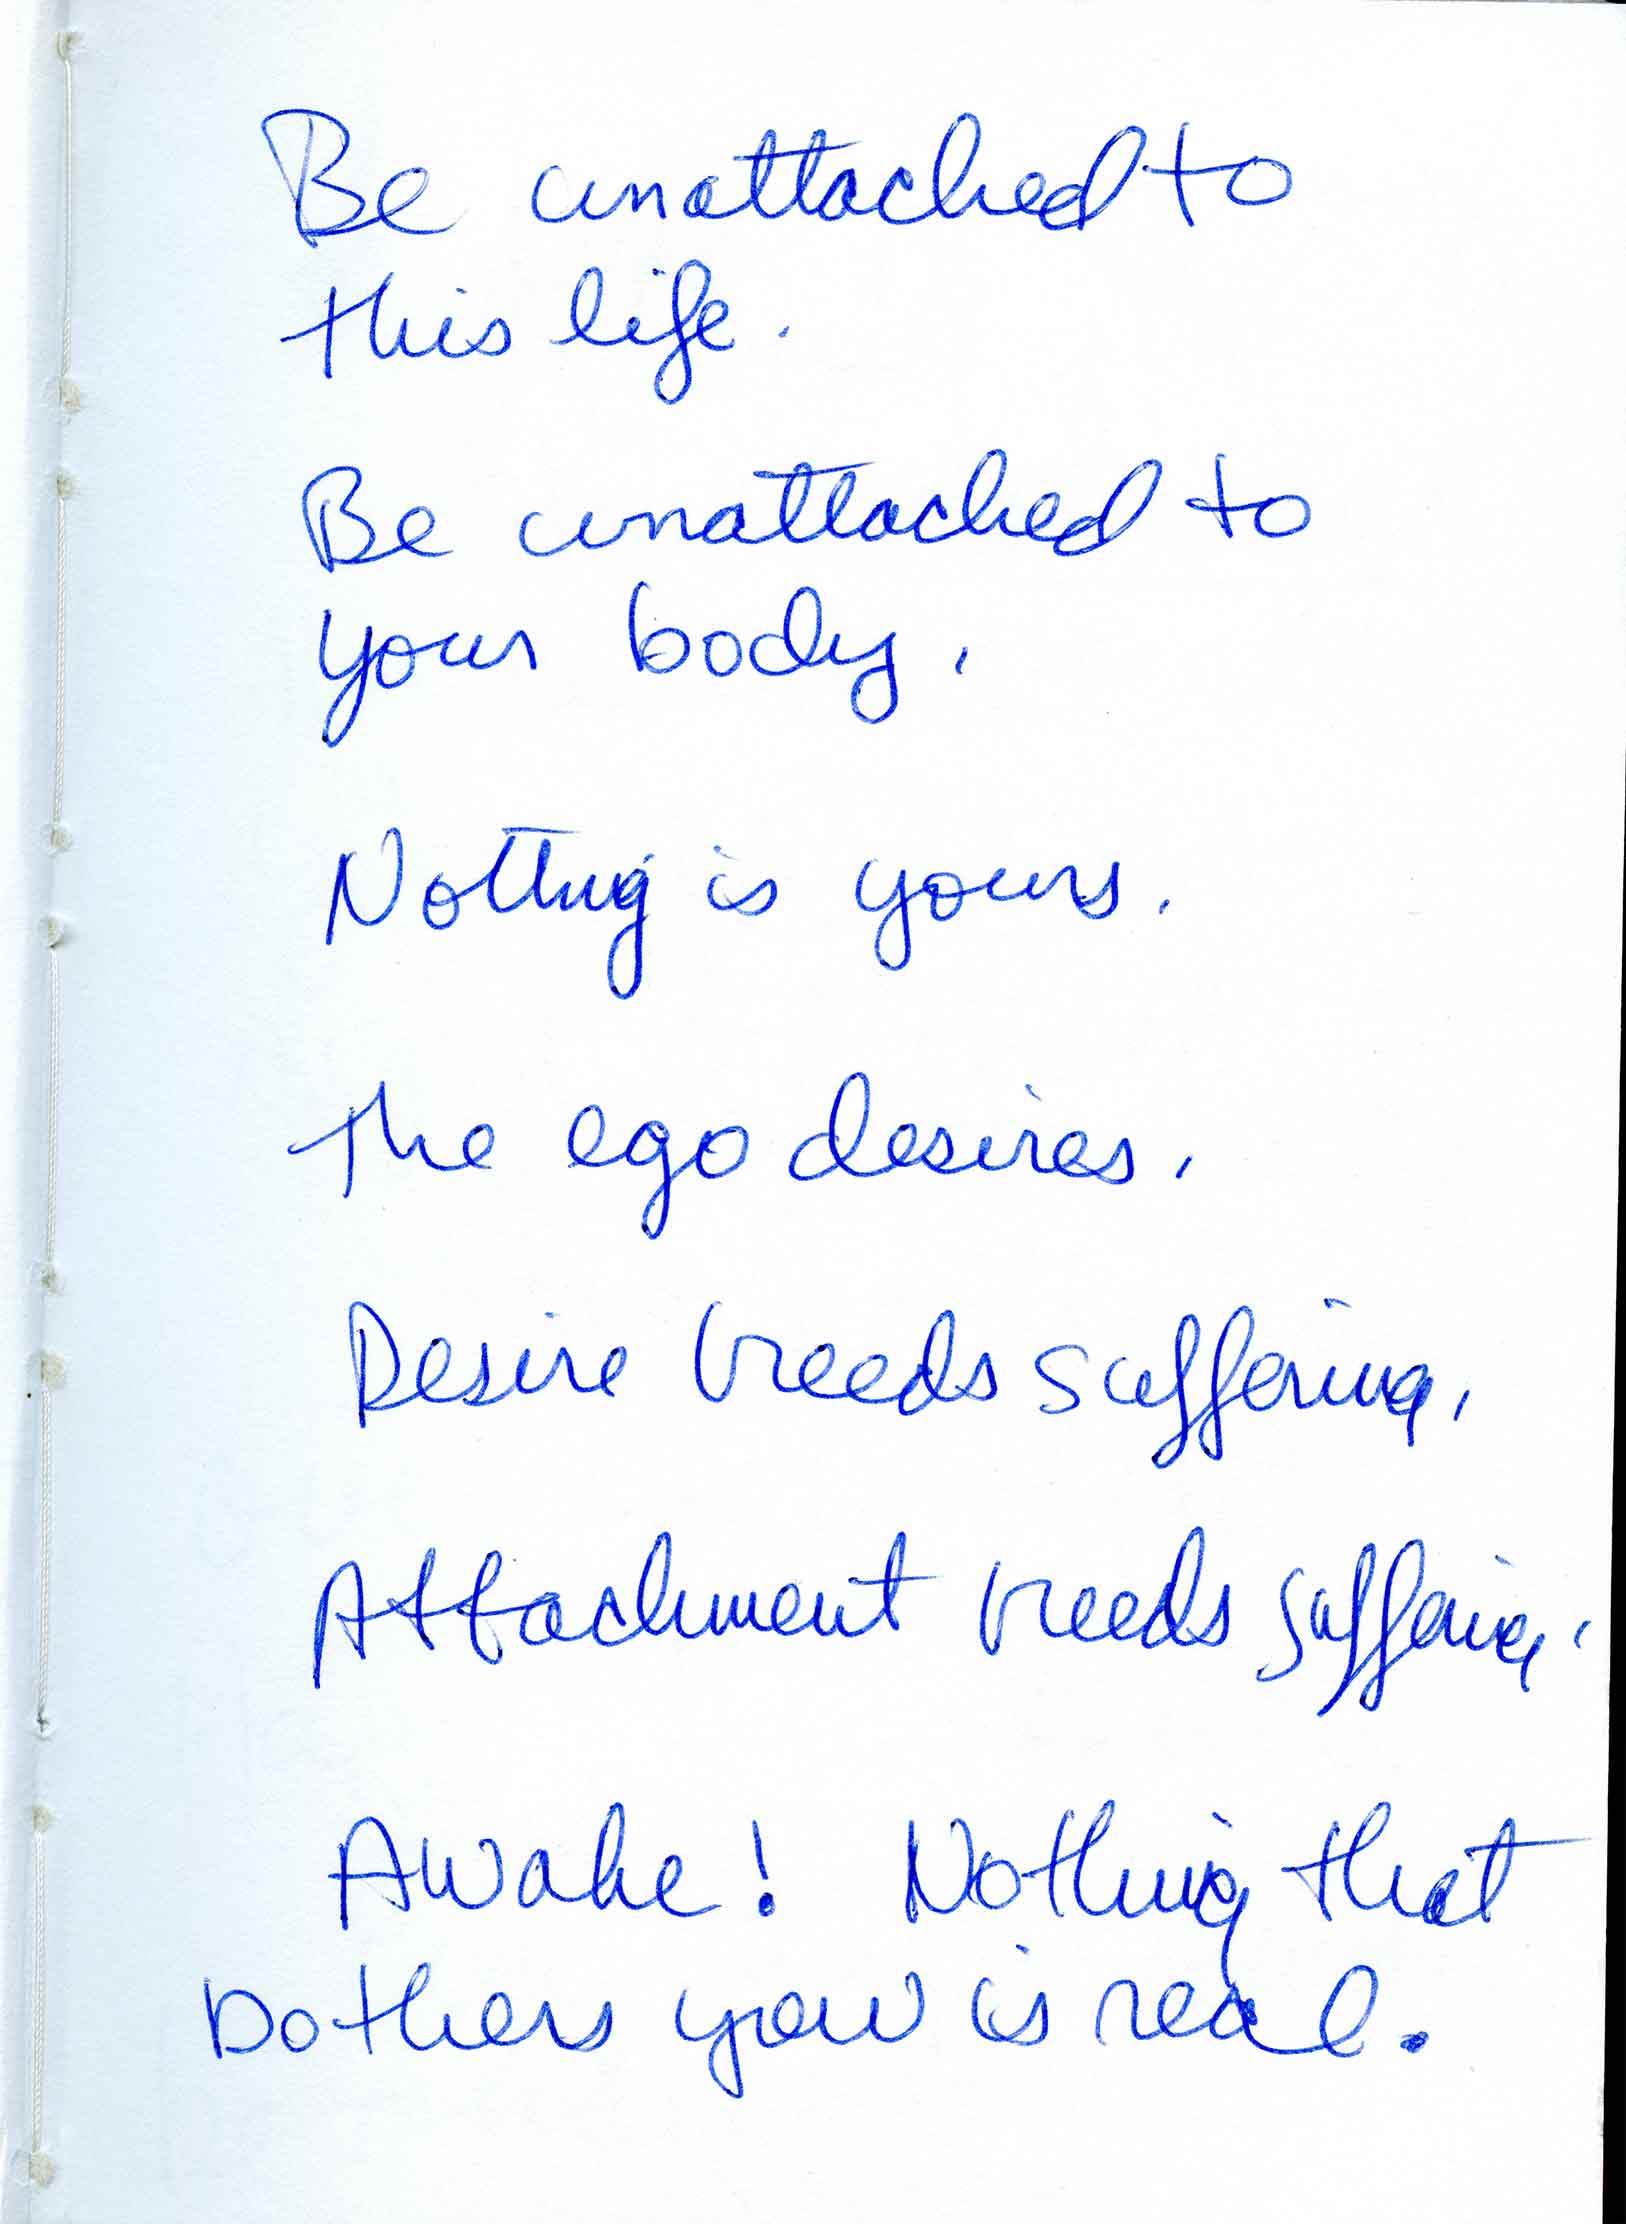 Be unattached to
this life.
Be unattached to
your body.
Nothing is yours.
The ego desires.
Desire breeds suffering.
Attachment breeds suffering.
Awake! Nothing that
bothers you is real.